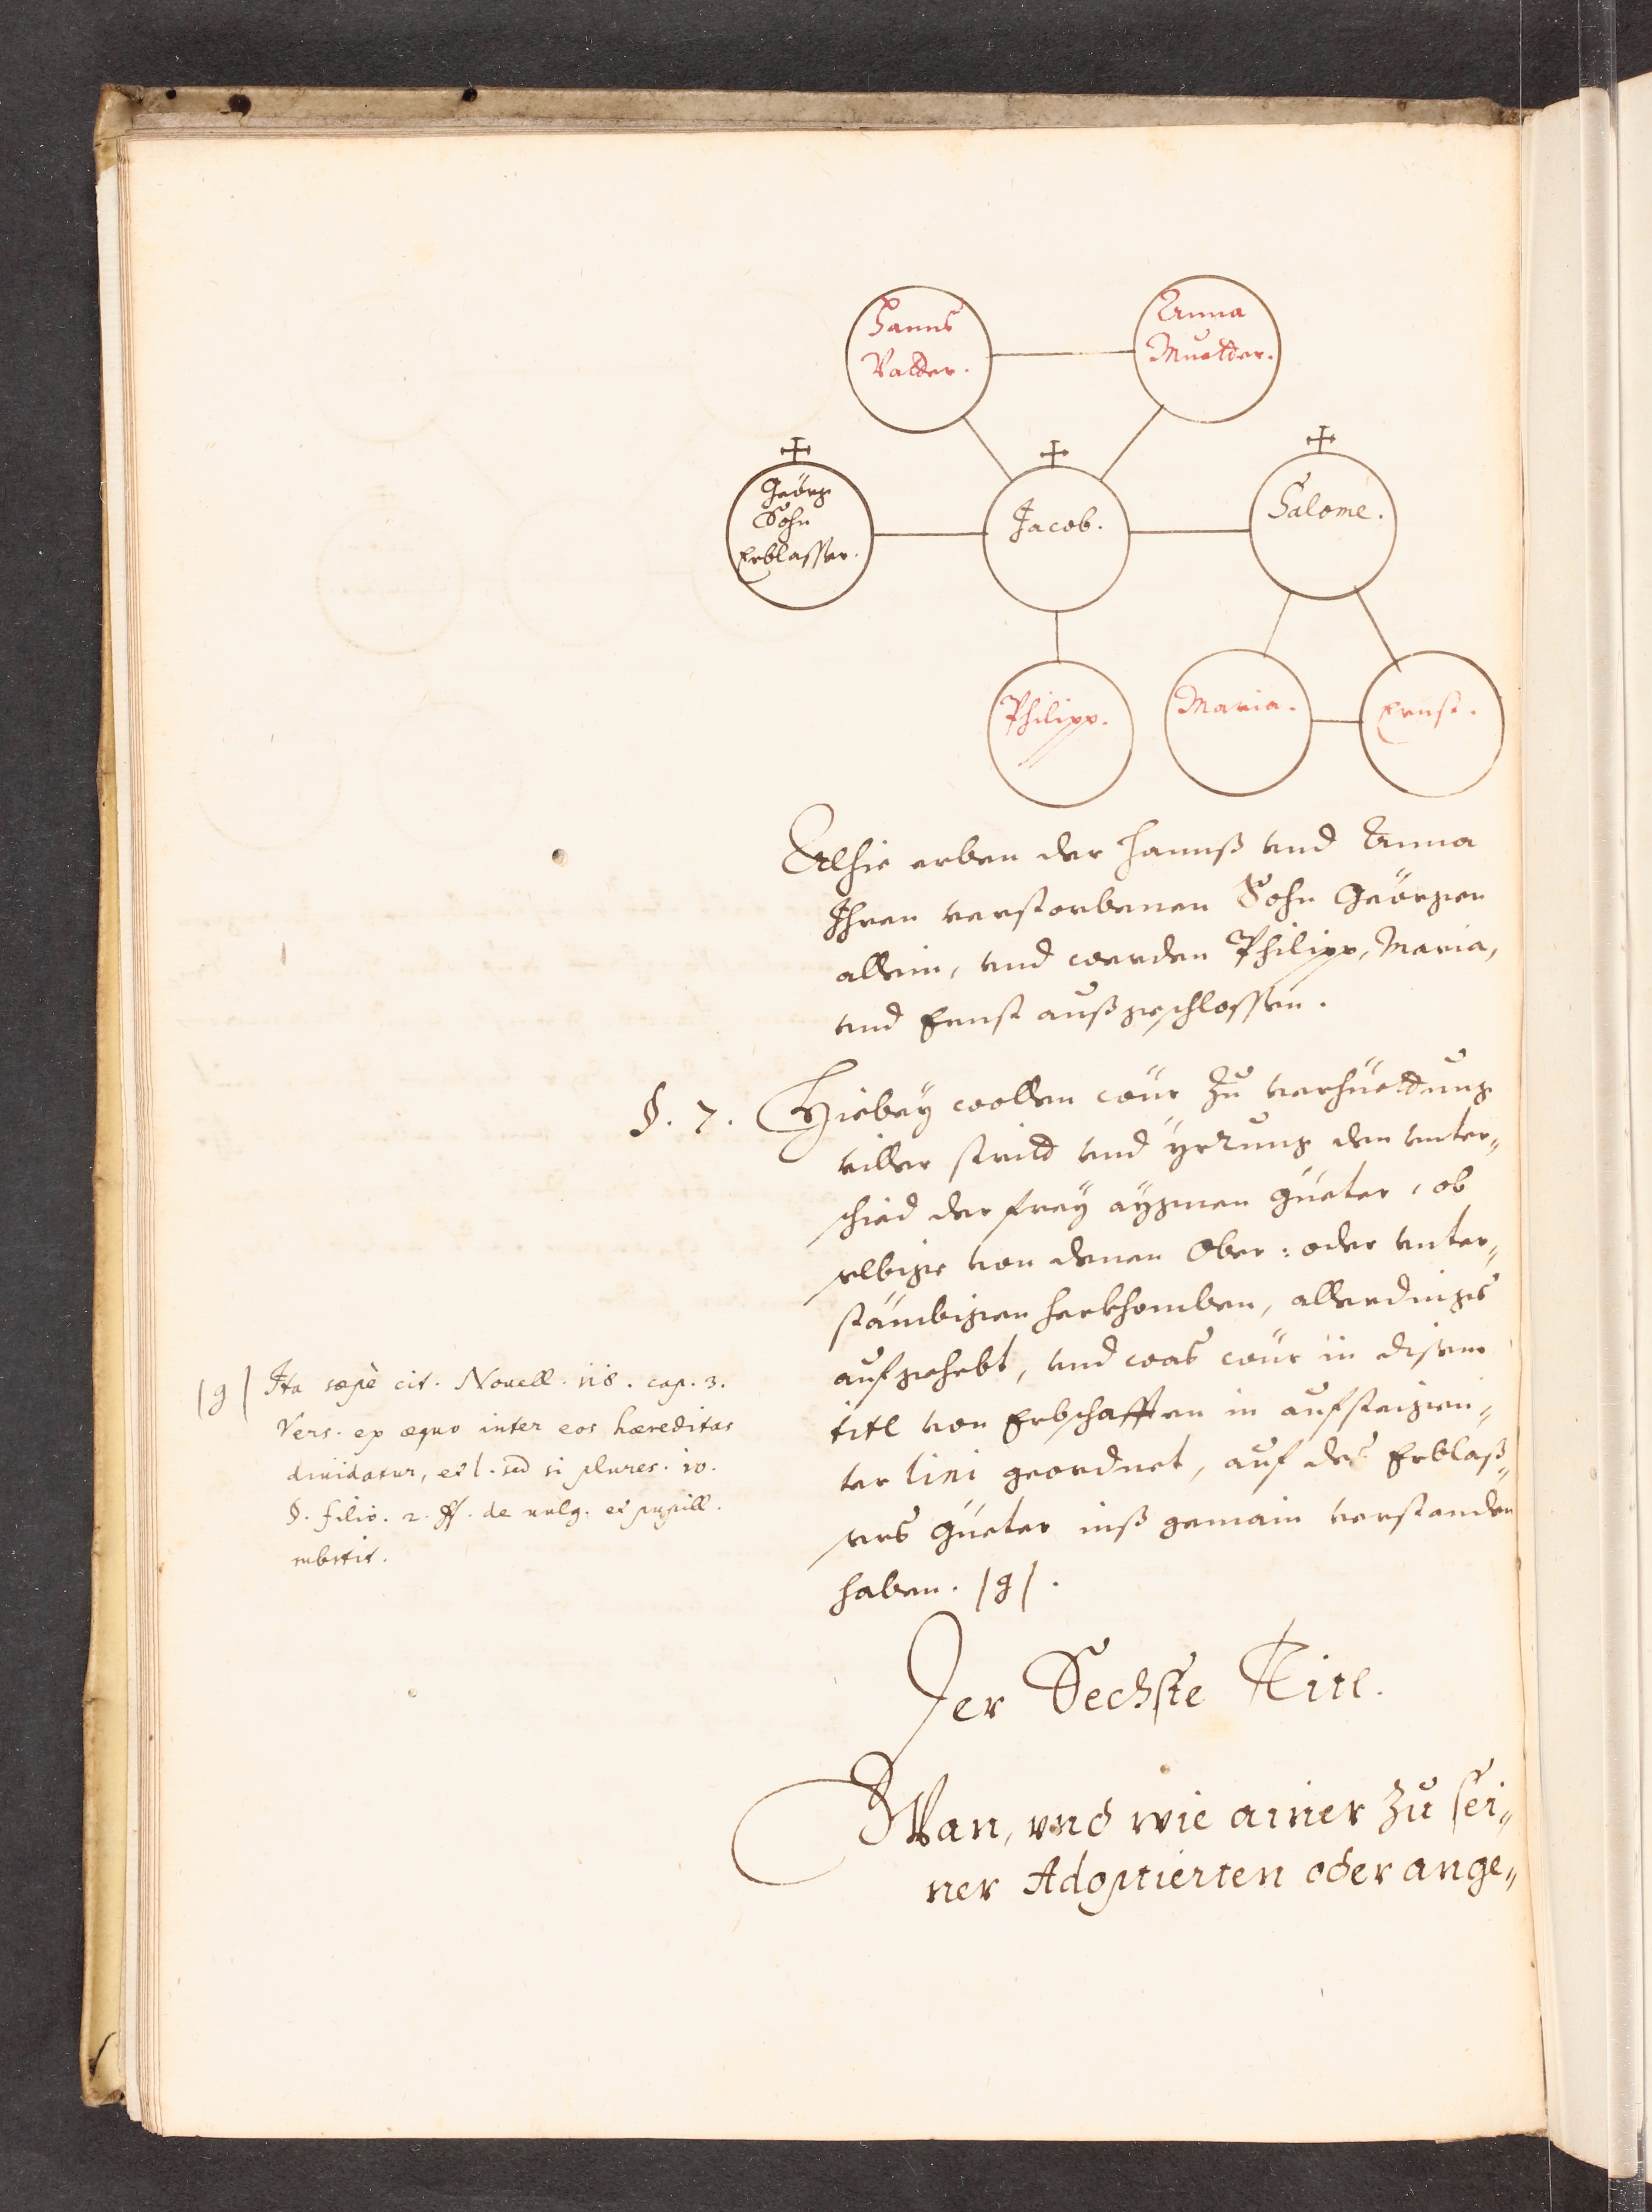 Hanns
Vatter.
Anna
Muetter.
Geörg
Sohn
Erblasser.
Jacob.
Salome.
Philipp.
Maria.
Ernst.
Alhie erben der Hannß vnd Anna
Ihren verstorbenen Sohn Geörgen
allein, vnd werden Philipp, Maria,
vnd Ernst außgeschlossen.
§. 7. Hiebey wollen wür zu verhüettung
viller stritt vnd yrrung den vnter„
schied der frey aygnen güeter, ob
selbige von denen Ober: oder vnter„
stämbigen herkhomben, allerdings
aufgehebt, vnd was wür in disem
titl von Erbschafften in aufsteigen„
ter lini geordnet, auf des Erblaß„
sers güeter inß gemain verstanden
haben. /g/.
/g/ Ita sæpè cit. Novell. 118. cap. 3.
Vers. ex æquo inter eos hæreditas
diuidatur, et l. sed si plures. 10.
§. filio. 2. ff. de vulg. et pupill.
substit.
Der Sechste Titl.
Wan, vnd wie ainer zu sei„
ner Adoptierten oder ange„